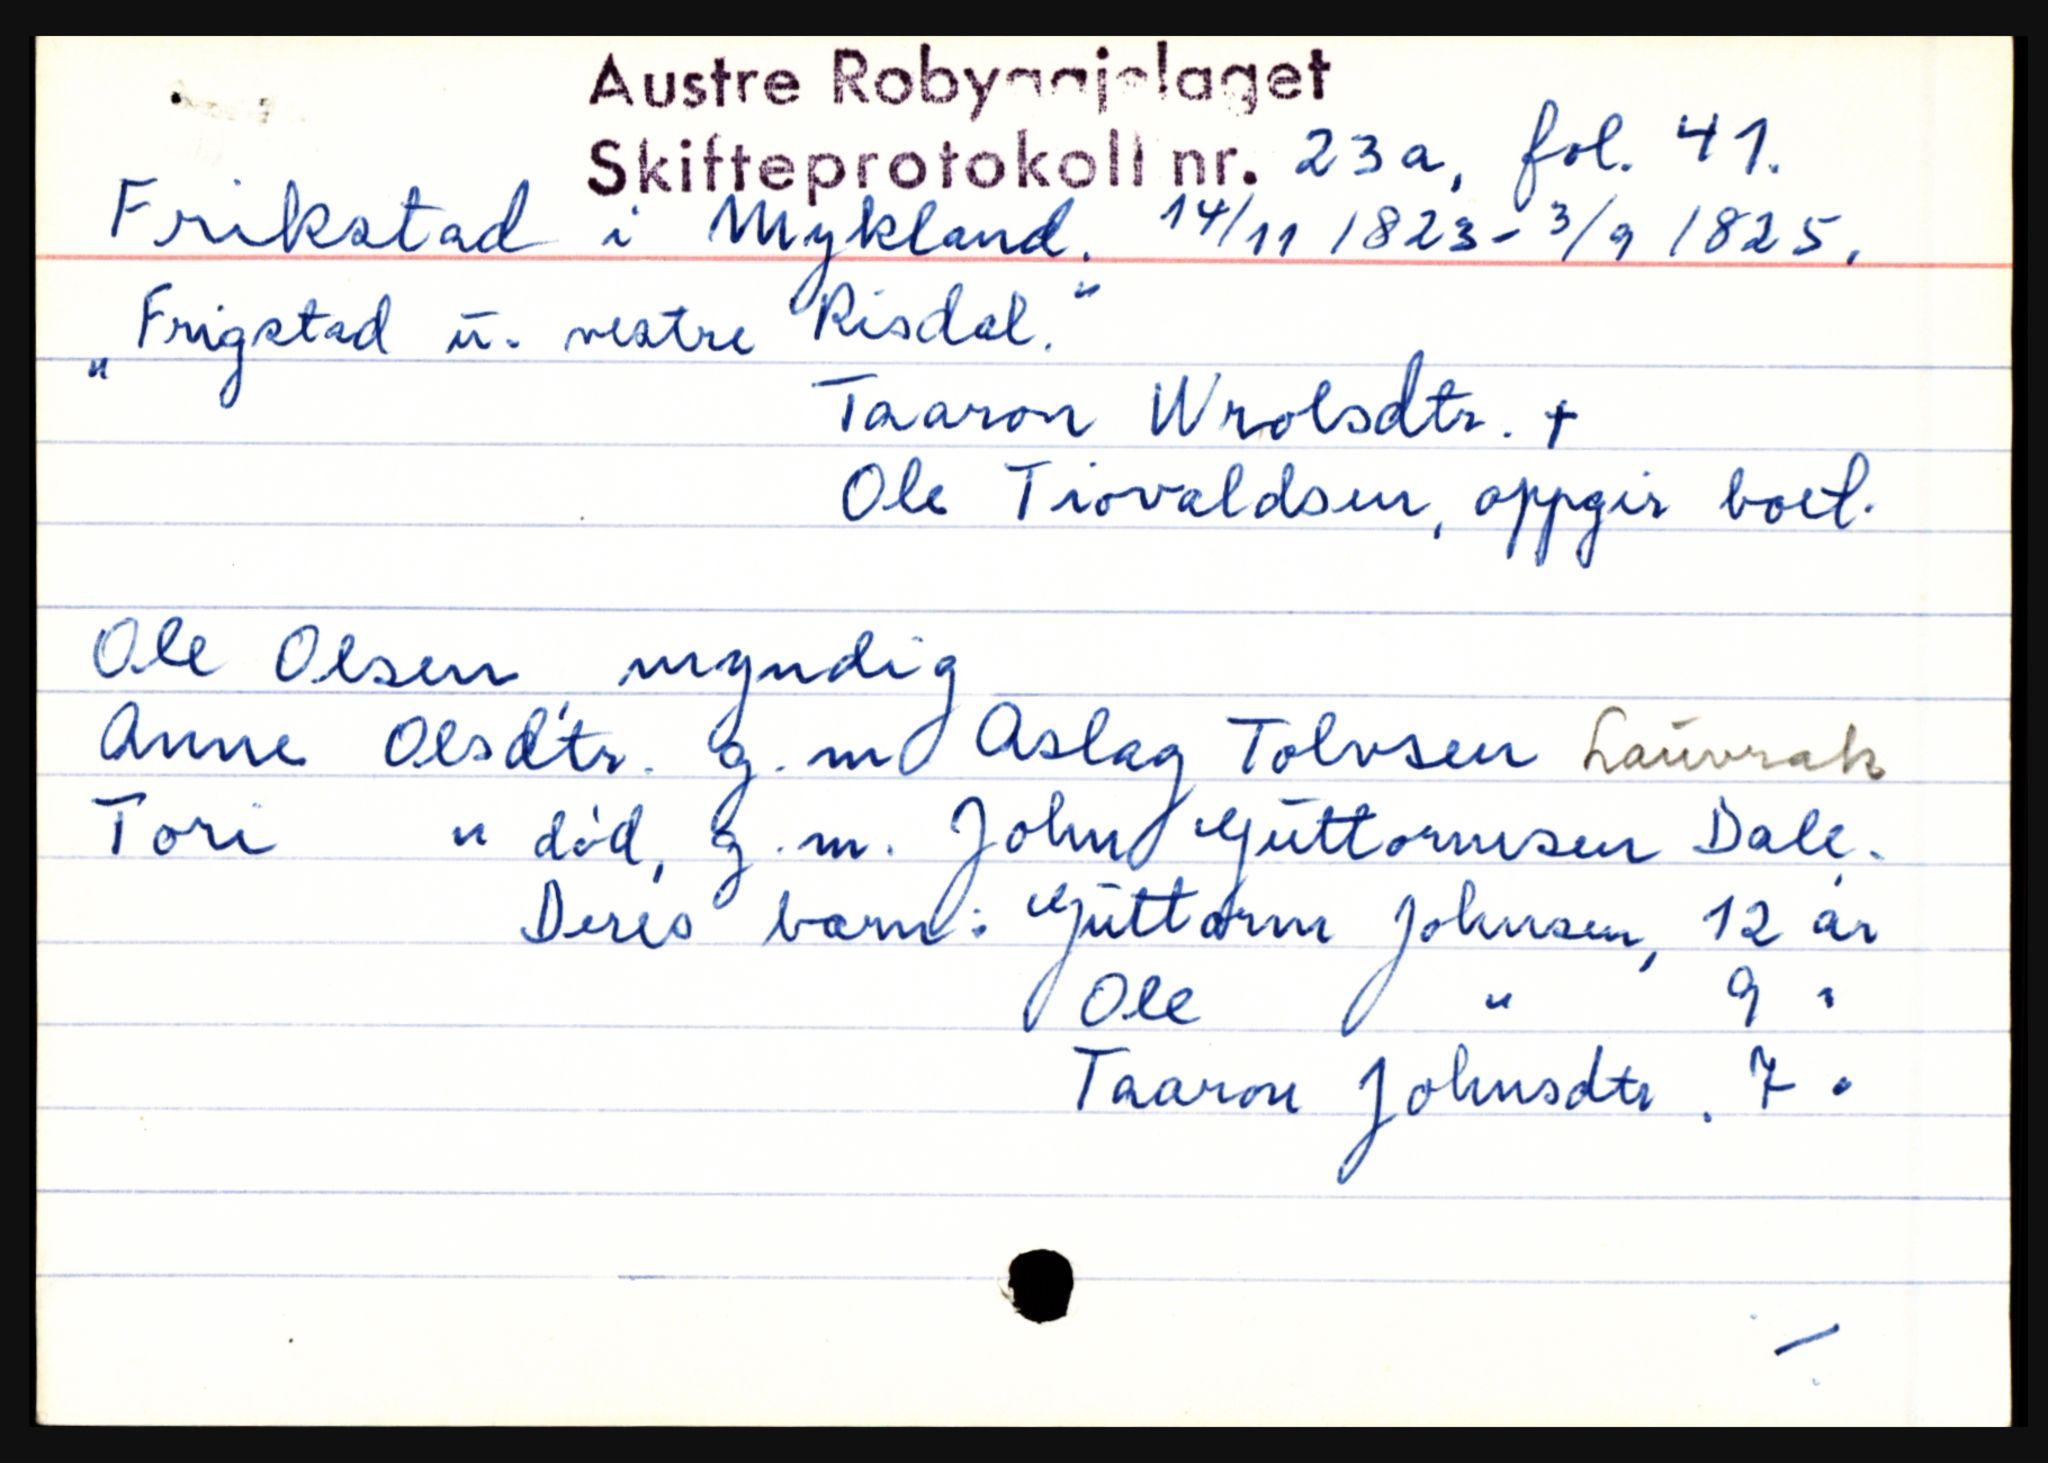 Austre Robyggjelaget
Skifteprotokoll nr. 23a, fol. 41.
Frikstad i Mykland. 14/11 1823 - 3/9 1825.
"Frigstad u. vestre Risdal."
Taaron Wrolsdtr. +
Ole Tiovaldsen, oppgir boet.
Ole Olsen, myndig
Anne Olsdtr. g. m Aslag Tolvsen Lauvrak
Tori " død, g. m. John Guttormsen Dale.
Deres barn: Guttorm Johnsen, 12 år
Ole " 9 "
Taaron Johnsdtr. 7 "